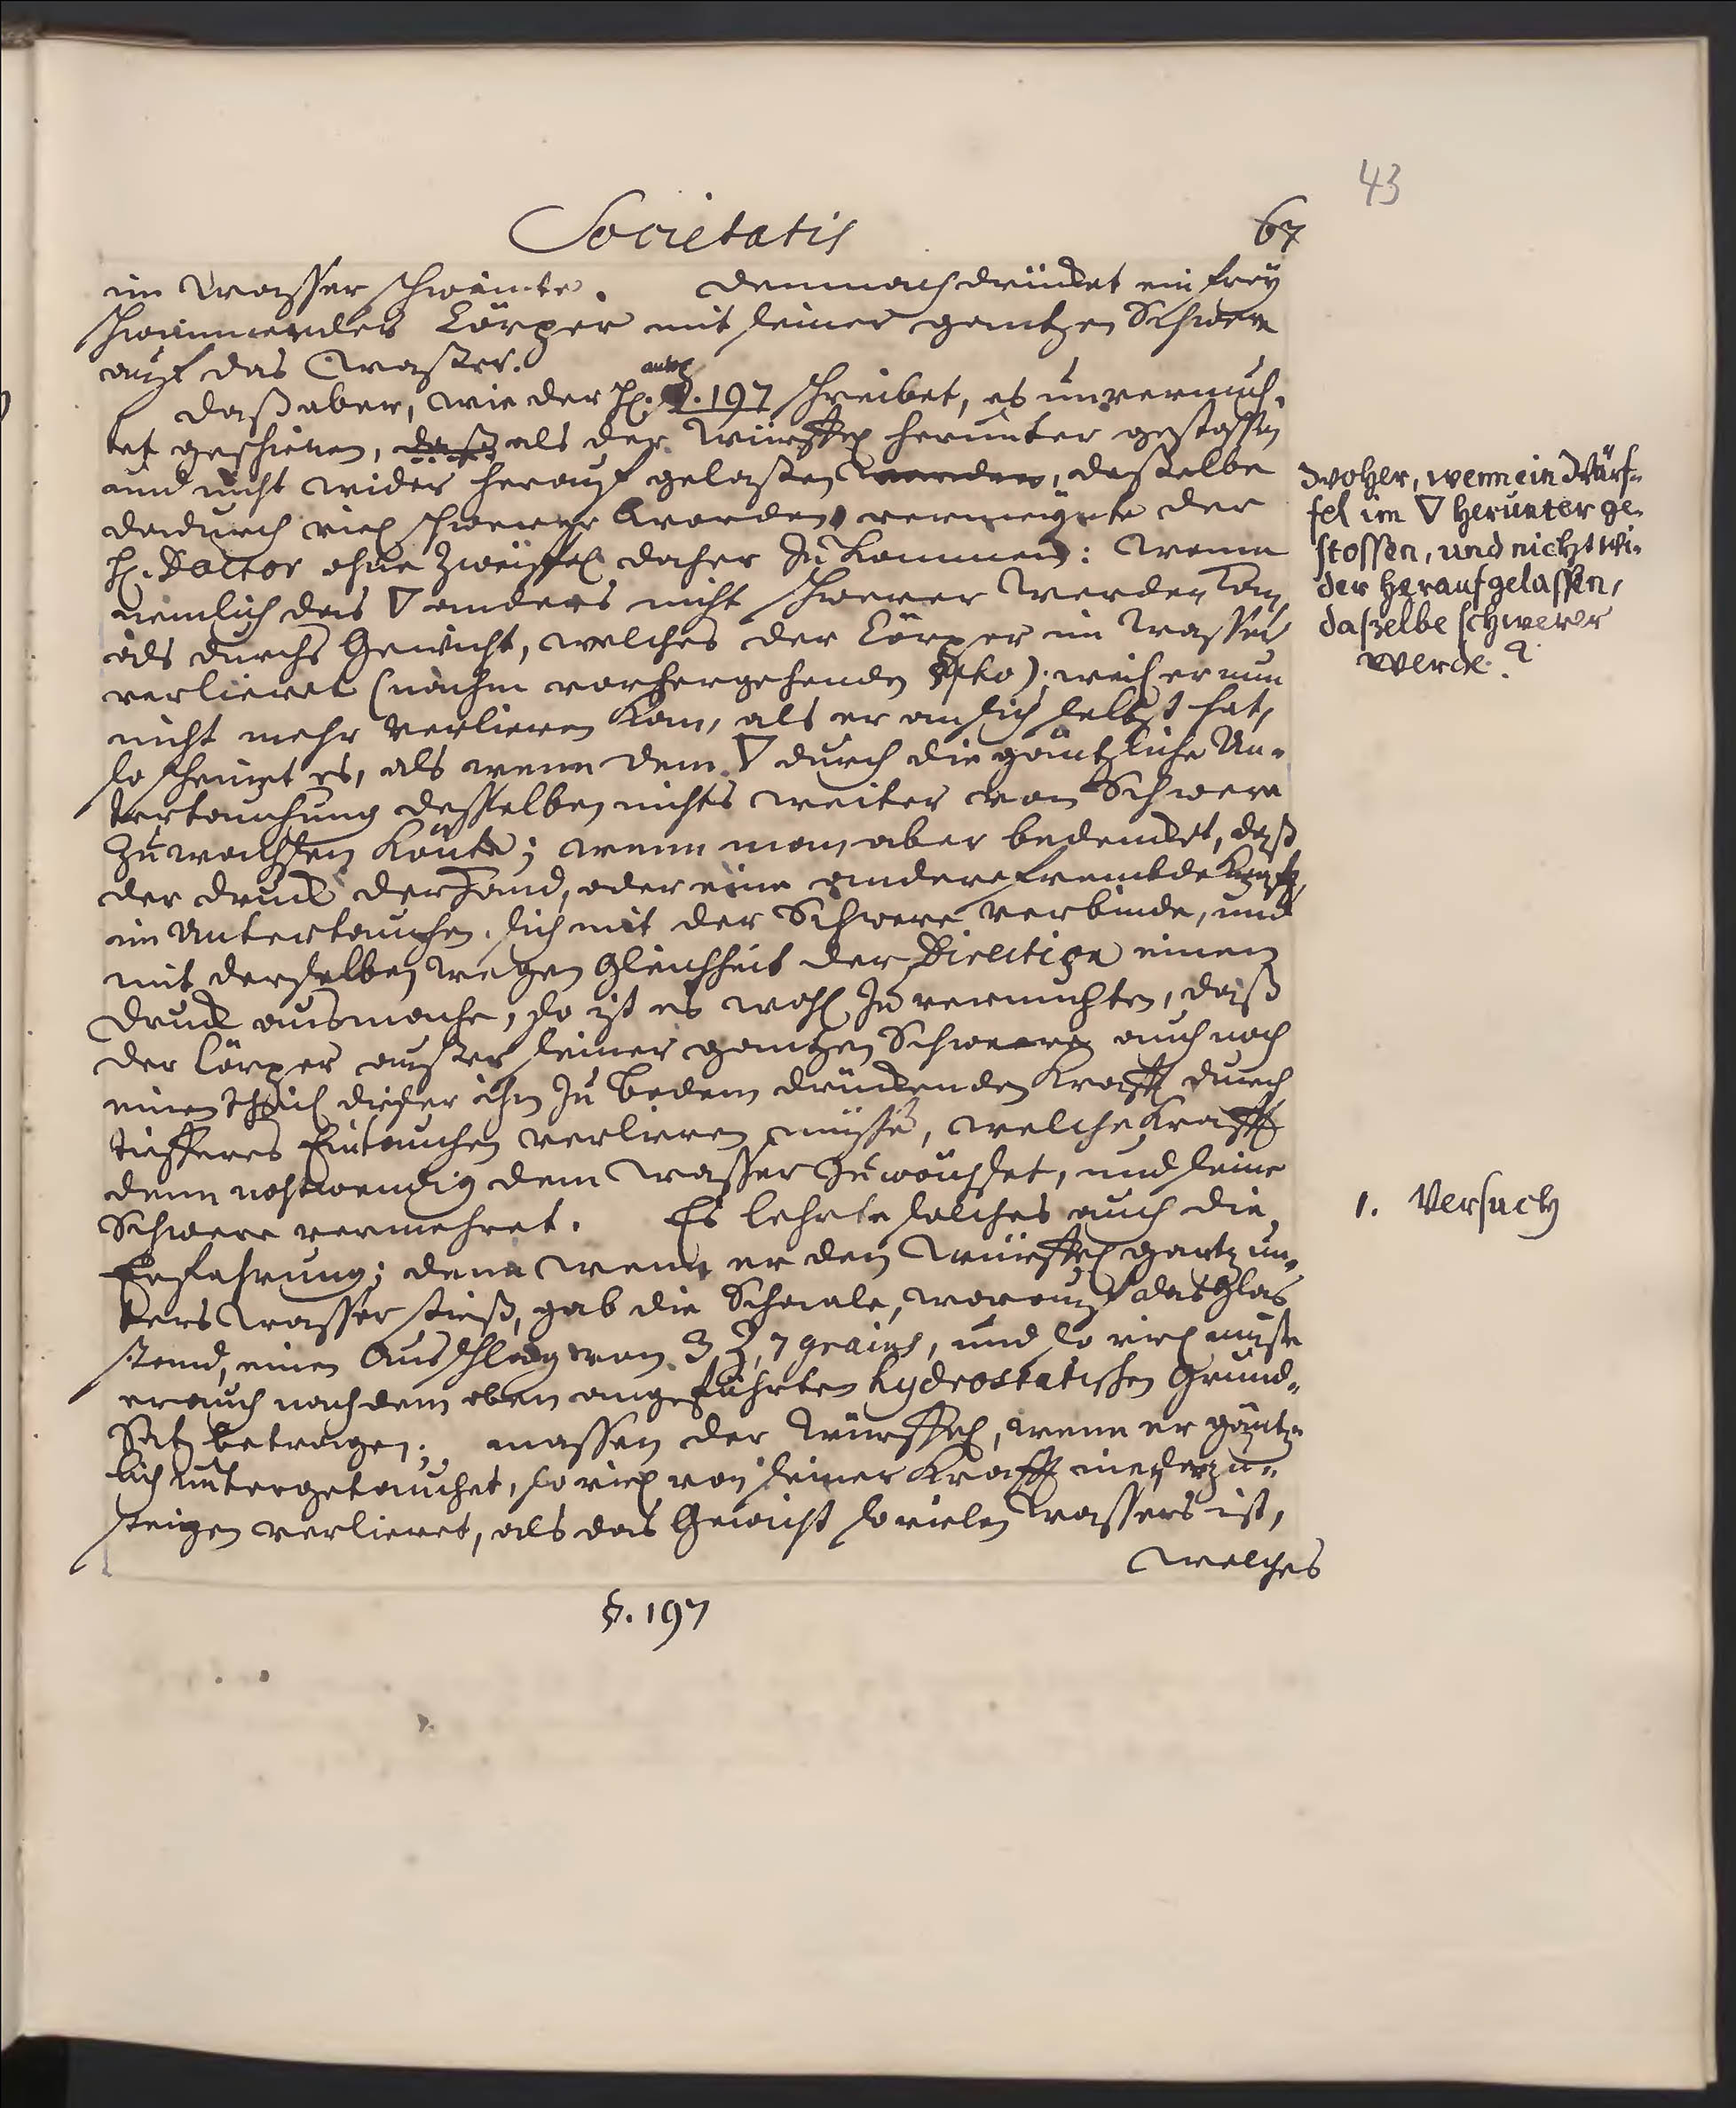 43
Societatis 67
im Wasser schwimte. Demnach drücket ein frey
schwimmender Cörper mit seiner gantzen Schwere
auf das Wasser.
Daß aber, wie der H. autor §. 197 schreibet, es unvermuh-
tet geschienen, daß als der Würffel herunter gestossen
und nicht wider herauf gelassen worden, dasselbe
dadurch viel schwerer worden, vermeynte der
H. Doctor ohne Zweiffel daher zu kommen: Wenn
nemlich das ∇ anders nicht schwerer werden kan
als durchs Gewicht, welches der Cörper im Wasser
verlieret (nachm vorhergehenden §pho); weil er nun
nicht mehr verlieren kan, als er an sich selbst hat,
so scheinet es, als wenn dem ∇ durch die gäntzliche Un-
tertauchung desselben nichts weiter von Schwere
zuwachsen könte; wenn man aber bedencket, daß
der Druck der Hand, oder eine andere fremde Krafft,
im Untertauchen, sich mit der Schwere verbinde, und
mit derselben wegen Gleichheit der Direction einen
Druck ausmache, so ist es wohl zu vermuhten, daß
der Cörper ausser seiner gantzen Schwere auch noch
einen Theil dieser ihn zu Bodem drückenden Krafft durch
tiefferes Eintauchen verlieren müsse, welche Krafft
denn nohtwendig dem Wasser zuwächset, und seine
Schwere vermehret. Es lehrte solches auch die
Erfahrung; denn wenn er den Würffel gantz un-
ters Wasser stieß, gab die Schaale, worauf das Glas
stand, einen Ausschlag von 3 ℨ, 7 grains, und so viel muste
er auch nach dem oben angeführten hydrostatischen Grund-
Satz betragen; massen der Würffel, wenn er gäntz-
lich untergetauchet, so viel von seiner Krafft niederzu-
steigen verlieret, als das Gewicht so vielen Wassers ist,
welches
§. 197
Woher, wenn ein Würf-
fel im ∇ herunter ge-
stossen, und nicht wi-
der herauf gelassen,
daszelbe schwerer
werde?
1. Versuch